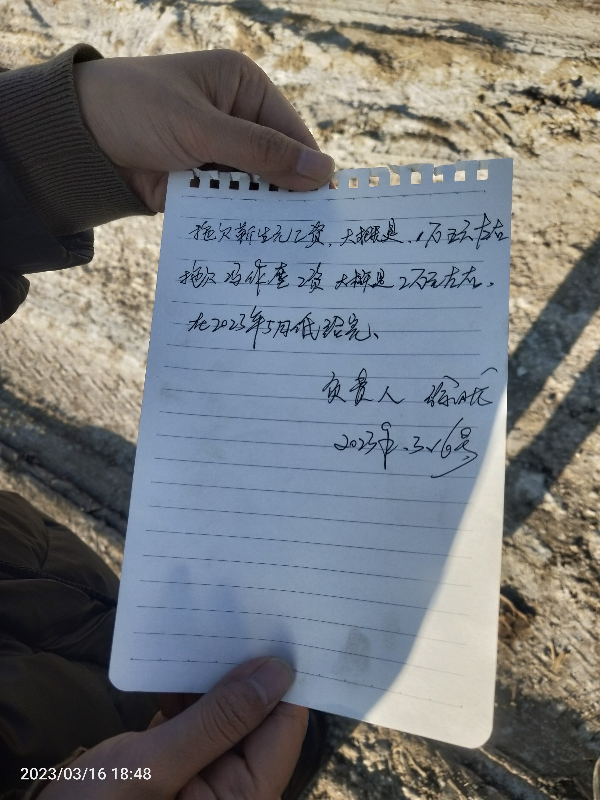 拖欠靳生元工资,大概是,1万五左右
拖欠 冯作奎工资 大概是2万左右、
在2023年5月低 结完、
负责人 徐
2023年.3.16号
2023/03/16 18:48